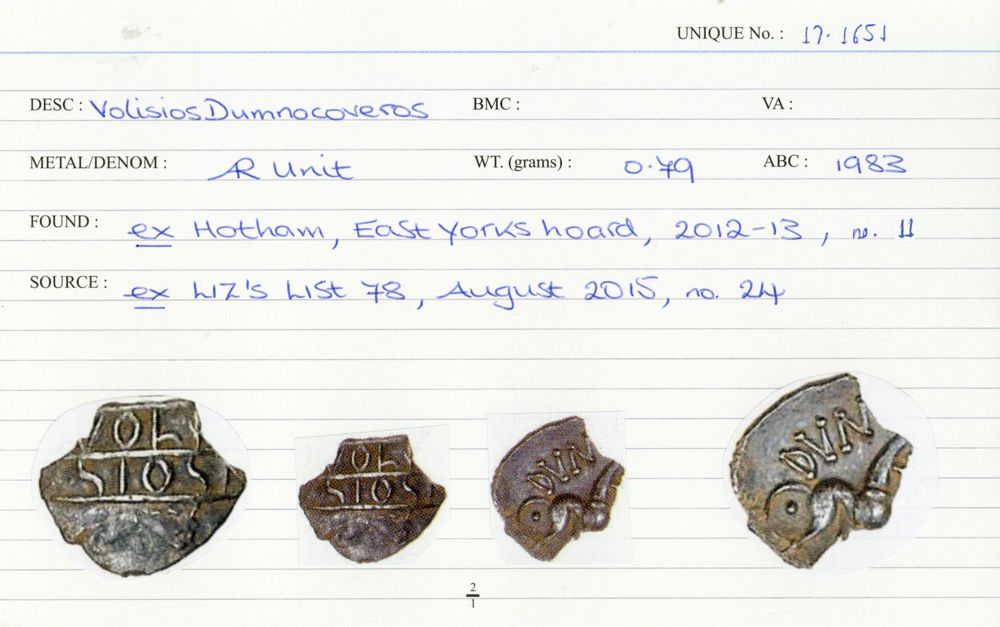 UNIQUE No. : 17.1651
DESC : Volisios Dumnocoveros BMC : VA :
METAL/DENOM : AR Unit WT. (grams) : 0.79 ABC : 1983
FOUND : ex Hotham, East Yorks hoard, 2012-13, no. 11
SOURCE : ex LIZ'S LIST 78, August 2015, no. 24
OL
SIOS
OL
SIOS
DVN
DVN
2
1